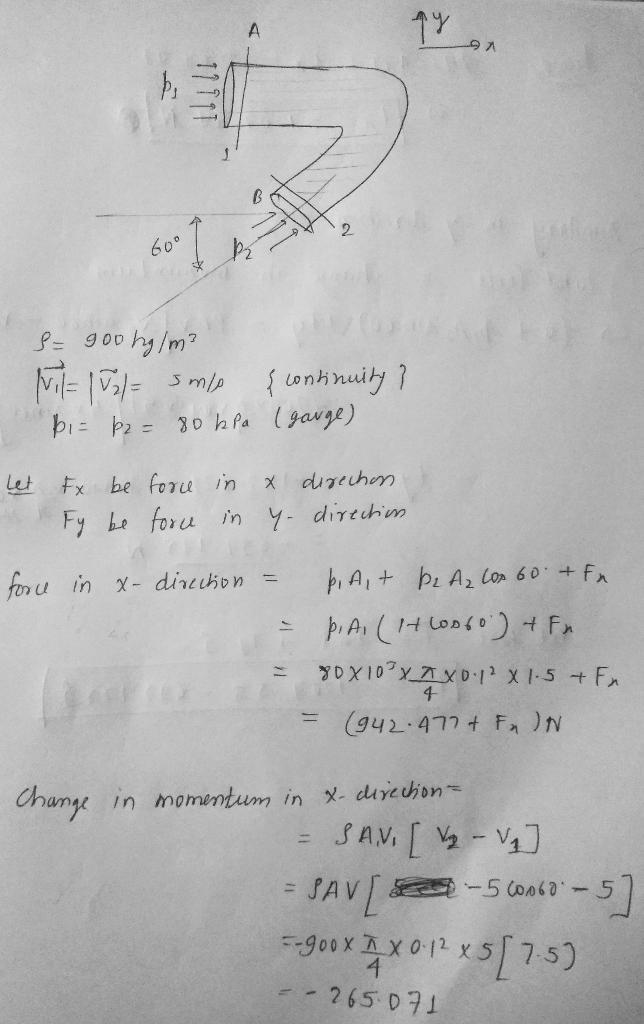 A
y
x
p₁
1
B
2
60°
p₂
ρ = 900 kg/m³
|V⃗₁| = |V⃗₂| = 5 m/s { continuity }
p₁ = p₂ = 80 kPa (gauge)
Let Fx be force in x direction
Fy be force in y-direction
force in x-direction = p₁A₁ + p₂A₂ cos 60° + Fx
= p₁A₁ (1+cos60°) + Fx
= 80×10³ × π/4 × 0.1² × 1.5 + Fx
= (942.477 + Fx) N
Change in momentum in x-direction =
= ρA₁V₁ [ V₂ - V₁ ]
= ρAV [ -5 cos60° - 5 ]
= -900 × π/4 × 0.1² × 5 [ 7.5 )
= - 265.071